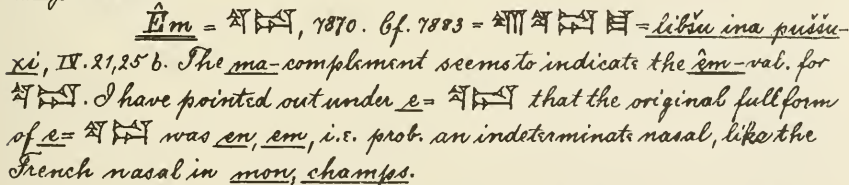 Êm = 𒌓𒁺, 7870. Cf. 7883 = 𒌓𒁺 𒈠 = libšu ina puššu-
xi, IV. 21,25 b. The ma-complement seems to indicate the êm-val. for
𒌓𒁺. I have pointed out under e = 𒌓𒁺 that the original full form
of e = 𒌓𒁺 was en, em, i.e. prob. an indeterminate nasal, like the
French nasal in mon, champs.